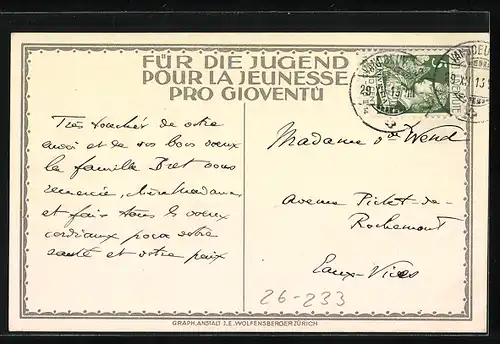 FÜR DIE JUGEND
POUR LA JEUNESSE
PRO GIOVENTÙ
VANDOEUVRES
29.XII.13
Très touchés de votre
envoi et de vos bons vœux
la famille Bret vous
remercie, chère Madame
et fait tous les vœux
cordiaux pour votre
santé et votre paix
Madame de Wend
Avenue Pictet-de-
Rochemont
Eaux-Vives
26-233
GRAPH. ANSTALT J.E. WOLFENSBERGER ZÜRICH